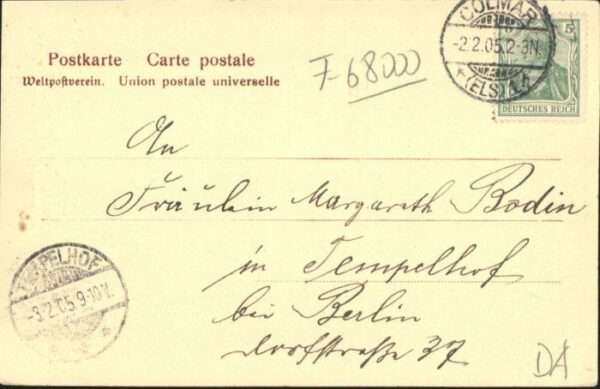 Postkarte Carte postale
Weltpostverein. Union postale universelle
F-68000
COLMAR
-2.2.05.2-3N.
(ELS) 1.
5
DEUTSCHES REICH
An
Fräulein Margareth Bodin
in Tempelhof
bei Berlin
Dorfstraße 37
TEMPELHOF
-3.2.05.9-10V.
DA